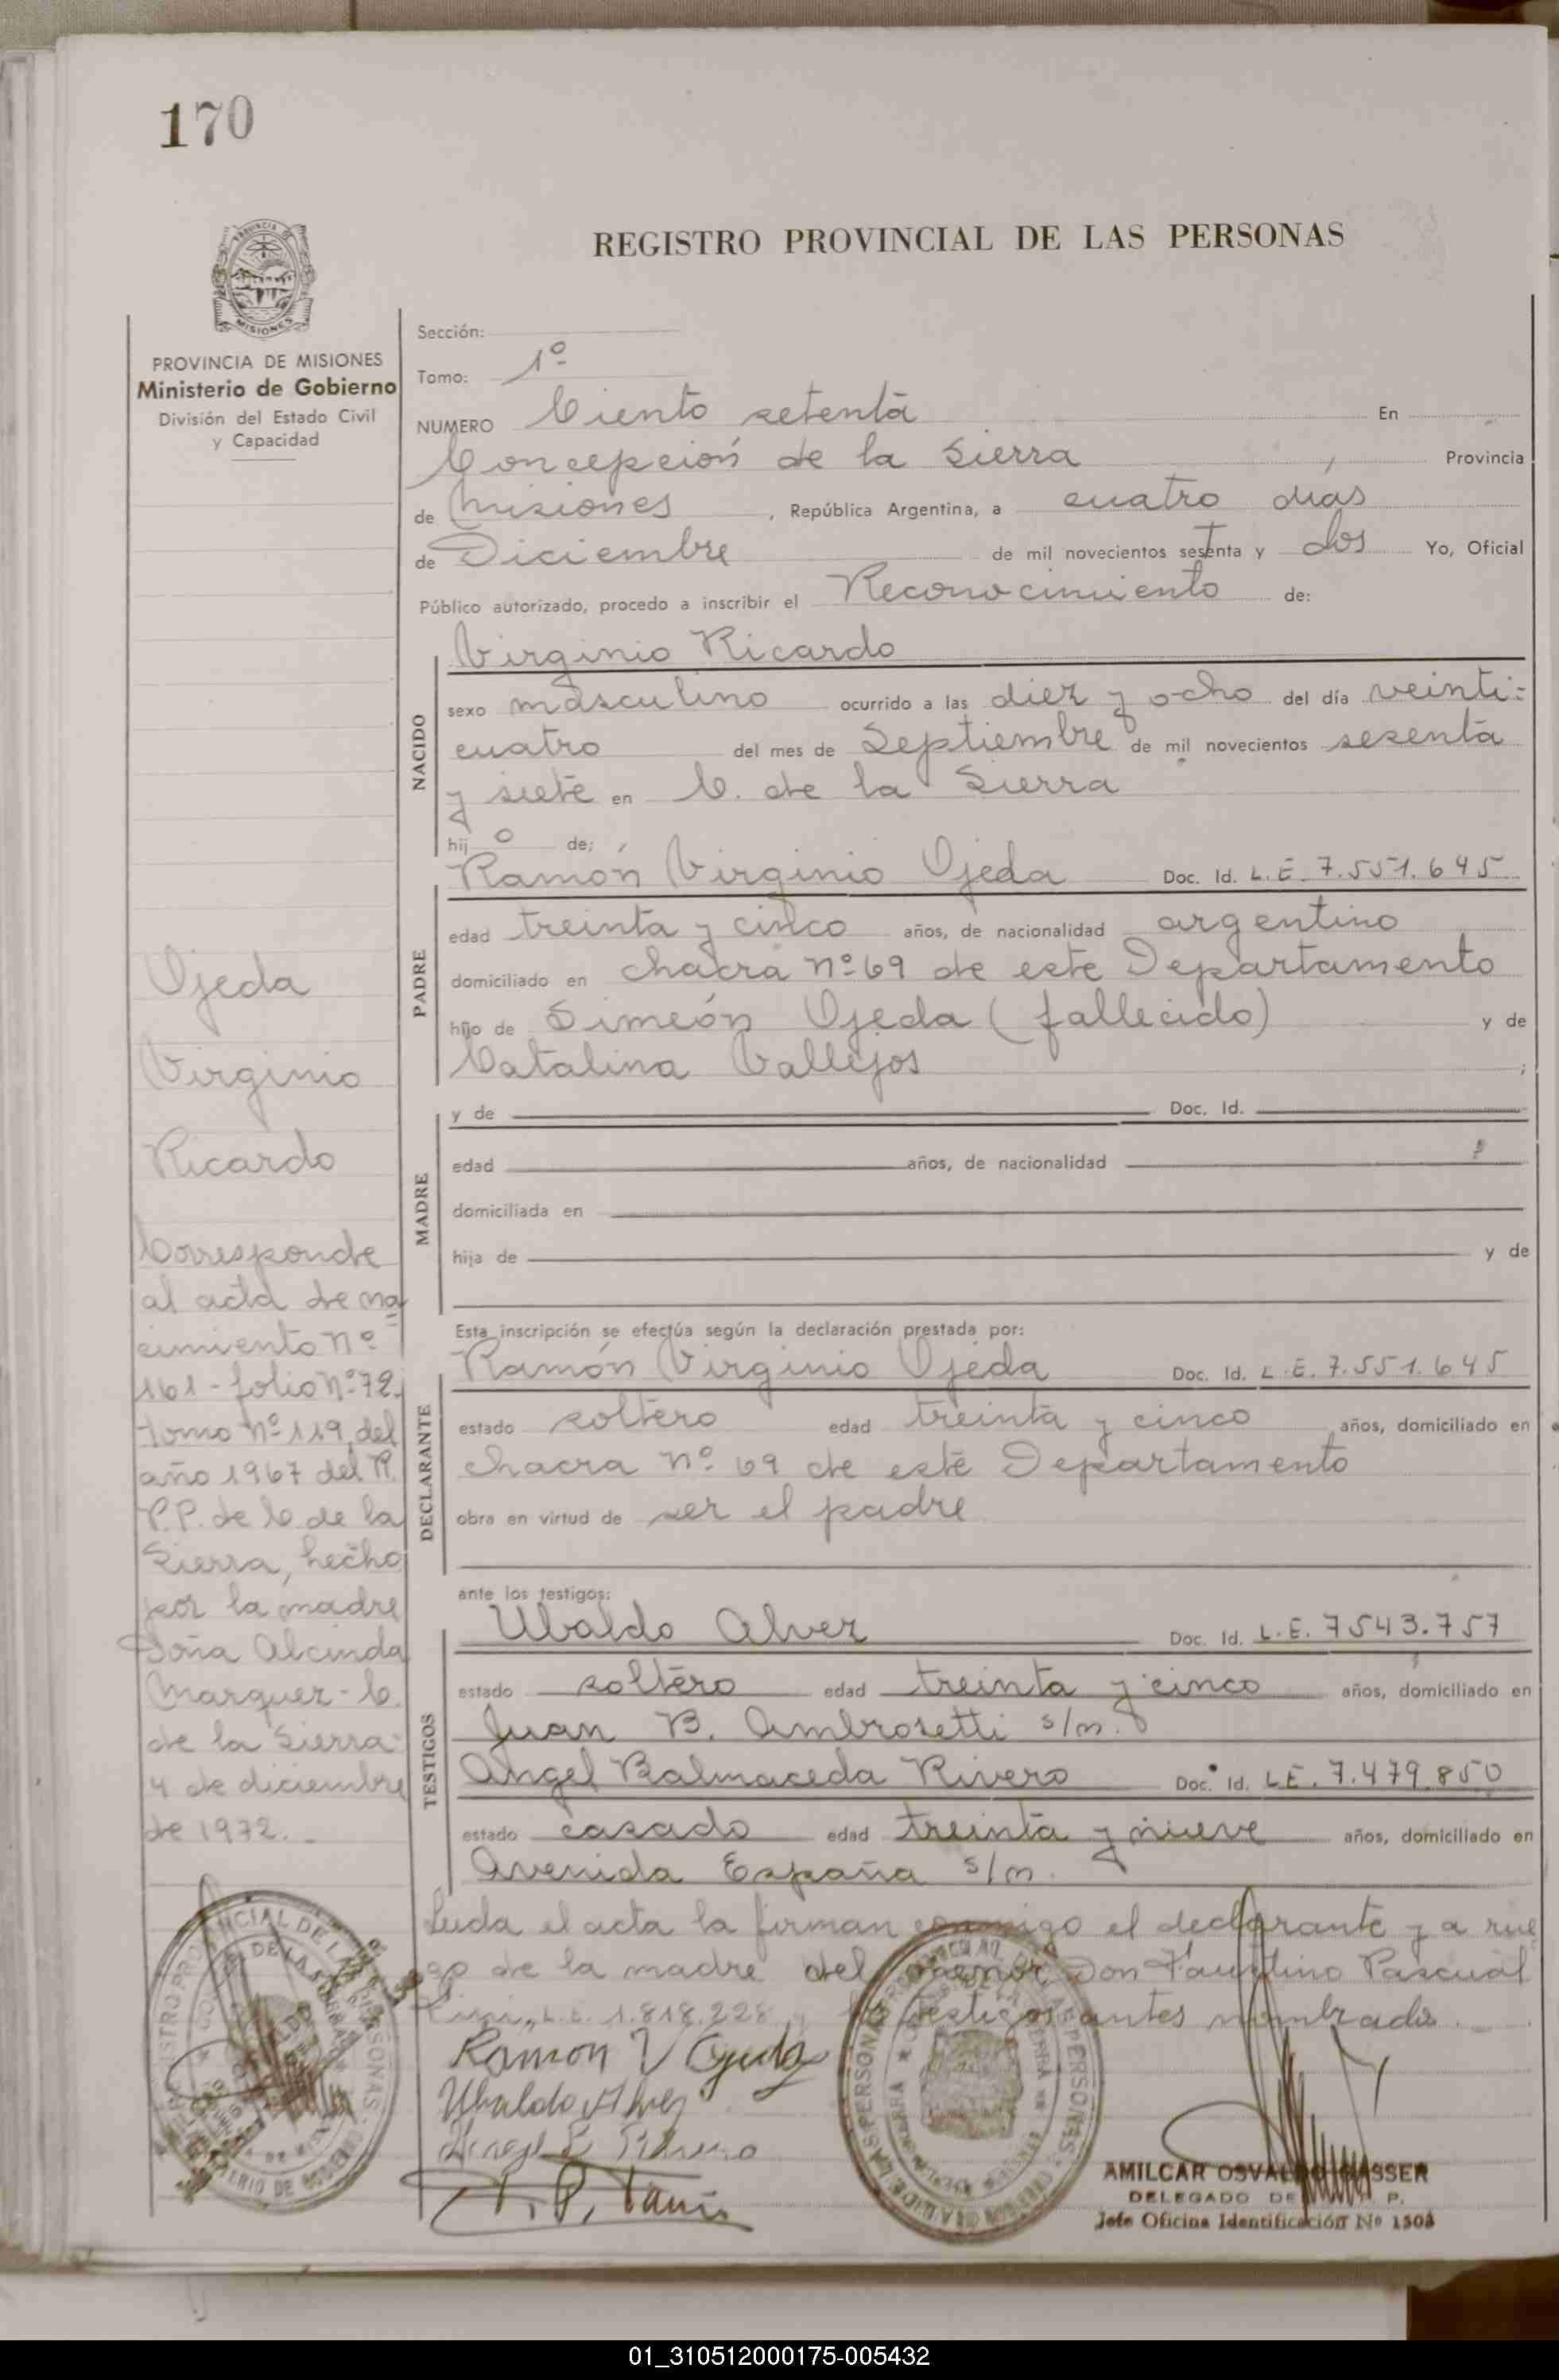 170
REGISTRO PROVINCIAL DE LAS PERSONAS
MISIONES
PROVINCIA DE MISIONES
Ministerio de Gobierno
División del Estado Civil
y Capacidad
Sección:
Tomo: 1º
NUMERO Ciento setenta En
Concepción de la Sierra, Provincia
de Misiones, República Argentina, a cuatro dias
de Diciembre de mil novecientos setenta y dos Yo, Oficial
Público autorizado, procedo a inscribir el Reconocimiento de:
NACIDO
Virginio Ricardo
sexo masculino ocurrido a las diez y ocho del día veinti-
cuatro del mes de Septiembre de mil novecientos sesenta
y siete en C. de la Sierra
hij o de;
PADRE
Ramón Virginio Ojeda Doc. Id. L.E. 7.551.645
edad treinta y cinco años, de nacionalidad argentino
domiciliado en chacra nº 69 de este Departamento
hijo de Simeón Ojeda (fallecido) y de
Catalina Vallejos ;
MADRE
y de Doc. Id.
edad años, de nacionalidad
domiciliada en
hija de y de
Esta inscripción se efectúa según la declaración prestada por:
DECLARANTE
Ramón Virginio Ojeda Doc. Id. L.E. 7.551.645
estado soltero edad treinta y cinco años, domiciliado en
chacra nº 69 de este Departamento
obra en virtud de ser el padre
ante los testigos:
TESTIGOS
Ubaldo Alvez Doc. Id. L.E. 7543.757
estado soltero edad treinta y cinco años, domiciliado en
Juan B. Ambrosetti s/n.
Angel Balmaceda Rivero Doc. Id. L.E. 7.479.850
estado casado edad treinta y nueve años, domiciliado en
Avenida España s/n.
Leida el acta la firman conmigo el declarante y a rue
go de la madre del menor Don Faustino Pascual
L.E. 1.818.228 y los testigos antes nombrados.
Ramon V Ojeda
Ubaldo Alvez
Ojeda
Virginio
Ricardo
Corresponde
al acta de na
cimiento nº
161 - folio nº 72.
tomo nº 119 del
año 1967 del R.
P.P. de C. de la
Sierra, hecho
por la madre
Doña Alcinda
Marquez - C.
de la Sierra -
4 de diciembre
de 1972.
AMILCAR OSVALDO
DELEGADO DE
Jefe Oficina Identificación Nº
01_310512000175-005432